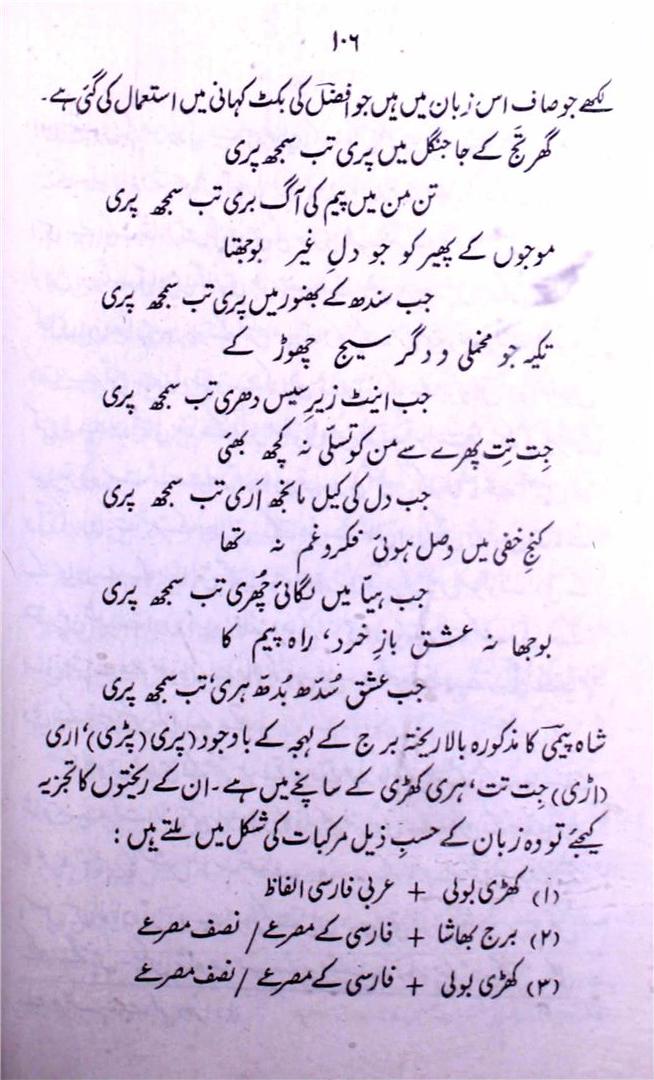 ۱۰۶
لکھے جو صاف اس زبان میں ہیں جو افضل کی بکٹ کہانی میں استعمال کی گئی ہے۔
گھر تج کے جا جنگل میں پری تب سمجھ پری
تن من میں پیم کی آگ بری تب سمجھ پری
موجوں کے پھیر کو جو دلِ غیر بوجھتا
جب سندھ کے بھنور میں پری تب سمجھ پری
تکیہ جو مخملی و دگر سیج چھوڑ کے
جب اینٹ زیرِ سیس دھری تب سمجھ پری
جِت تِت پھرے سے من کو تسلّی نہ کچھ بھئی
جب دل کی کیل مانجھ اَری تب سمجھ پری
کنجِ خفی میں وصل ہوئی فکر و غم نہ تھا
جب ہیا میں لگائی چُھری تب سمجھ پری
بوجھا نہ عشق بازِ خرد، راہ پیم کا
جب عشق سُدھ بُدھ ہری تب سمجھ پری
شاہ پیمی کا مذکورہ بالا ریختہ برج کے لہجہ کے باوجود (پری (پڑی)، اری
(اڑی) جِت تت، ہری کھڑی کے سانچے میں ہے۔ ان کے ریختوں کا تجزیہ
کیجئے تو وہ زبان کے حسبِ ذیل مرکبات کی شکل میں ملتے ہیں :
(۱) کھڑی بولی + عربی فارسی الفاظ
(۲) برج بھاشا + فارسی کے مصرعے / نصف مصرعے
(۳) کھڑی بولی + فارسی کے مصرعے / نصف مصرعے